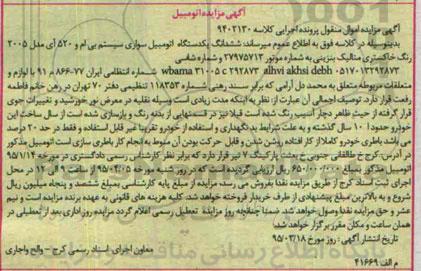 آگهی مزایده اتومبیل
آگهی مزایده اموال منقول پرونده اجرایی کلاسه ۹۴۰۲۱۳۰
بدینوسیله در کلاسه فوق به اطلاع عموم میرساند: ششدانگ یکدستگاه اتومبیل سواری سیستم بی ام و ۵۲۰ آی مدل ۲۰۰۵
رنگ خاکستری متالیک بنزینی به شماره موتور ۲۷۹۷۵۷۱۳ و شماره شاسی
۰۵۱۷۰۱۳۲۹۲۸۷۳ alhvi akhsi debh ۲۹۲۸۷۳ c ۳۱۰۵ wbama شماره انتظامی ایران ۷۷-۸۶۶ م ۹۱ با لوازم و
متعلقات مربوطه متعلق به محمد دل آرامی که برابر سند رهنی شماره ۱۱۸۳۵۳ تنظیمی دفتر ۷۰ تهران در رهن خانم فاطمه
رفعت قرار دارد. توصیف اجمالی آن عبارت از: نظر به اینکه مدت زیادی است وسیله نقلیه در معرض نور خورشید و تغییرات جوی
قرار گرفته از حیث ظاهر دچار آسیب رنگ شده است قبلا نیز در قسمتهایی از بدنه رنگ و بازسازی شده است از سال ساخت این
خودرو حدود ۱۰ سال گذشته و به علت شرایط بد نگهداری و استفاده از خودرو تقریبا غیر قابل استفاده و فقط در حد ۲۰ درصد
می باشد باطری خودرو کاملا از کار افتاده روشن شدن و قابل حرکت بودن آن منوط به انجام کار باطری سازی است اتومبیل مذکور
در آدرس: کرج خ طالقانی جنوبی خ بعثت پارکینگ ۷ تیر قرار دارد که برابر نظر کارشناس رسمی دادگستری در مورخه ۹۵/۱/۱۴
اتومبیل مذکور بمبلغ ۶۵۰/۰۰۰/۰۰۰ ریال ارزیابی گردیده است که در روز شنبه مورخه ۹۵/۰۴/۰۵ از ساعت ۹ الی ۱۲ در محل
اجرای ثبت اسناد کرج از طریق مزایده نقدا بفروش می رسد، مزایده از مبلغ پایه کارشناسی بمبلغ ششصد و پنجاه میلیون ریال
شروع و به بالاترین مبلغ پیشنهادی از طرف خریدار فروخته خواهد شد. کلیه هزینه های قانونی به عهده برنده مزایده است و نیم
عشر و حق مزایده نقدا وصول خواهد شد. ضمنا چنانچه روز مزایده تعطیل رسمی اعلام گردد مزایده روز اداری بعد از تعطیلی در
همان ساعت و مکان مقرر برگزار خواهد شد.
تاریخ انتشار آگهی: روز مورخ ۹۵/۰۳/۱۸
معاون اجرای اسناد رسمی کرج - والح واجاری
م الف ۴۱۶۶۹